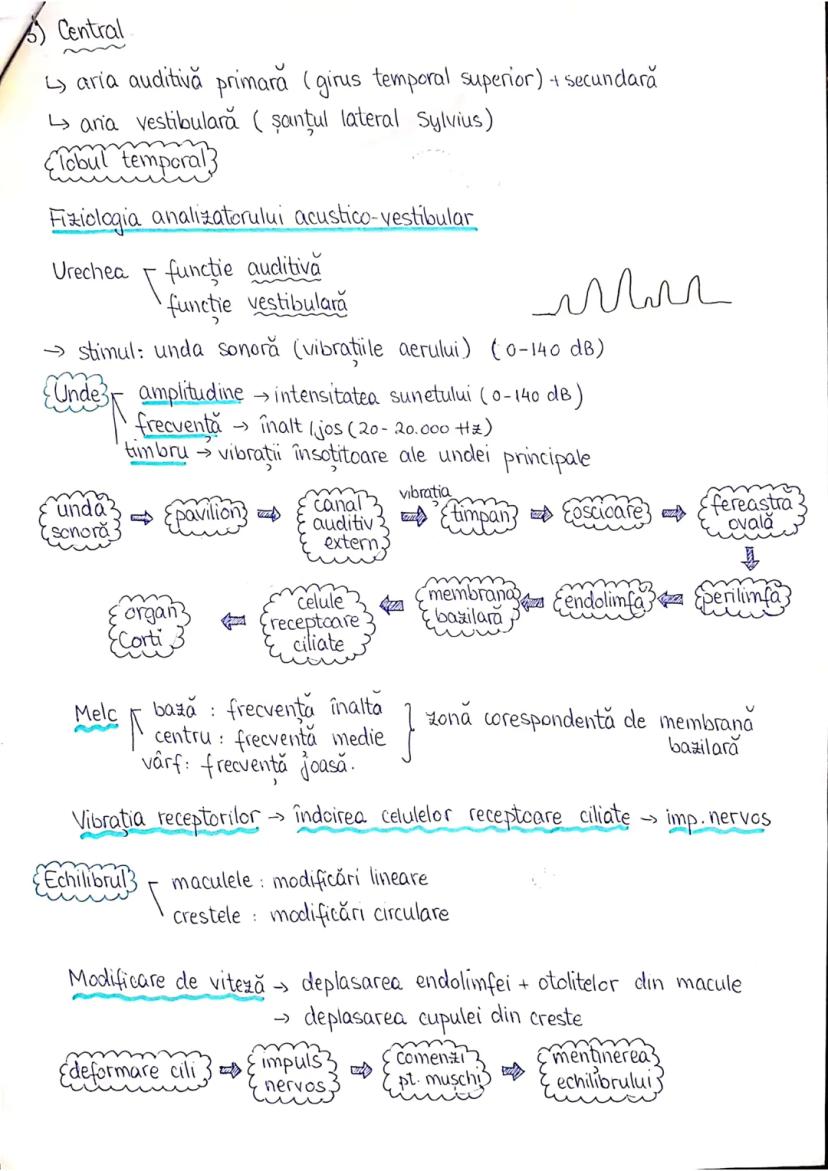 3) Central
↳ aria auditivă primară (girus temporal superior) + secundară
↳ aria vestibulară (șanțul lateral Sylvius)
lobul temporal
Fiziologia analizatorului acustico-vestibular
Urechea funcție auditivă
funcție vestibulară
→ stimul: unda sonoră (vibrațiile aerului) (0-140 dB)
Unde amplitudine → intensitatea sunetului (0-140 dB)
frecvență → înalt / jos (20-20.000 Hz)
timbru → vibrații însoțitoare ale undei principale
undă sonoră ⇒ pavilion ⇒ canal auditiv extern ⇒ vibrația timpan ⇒ oscioare ⇒ fereastră ovală
⇓
organ Corti ⇐ celule receptoare ciliate ⇐ membrana bazilară ⇐ endolimfă ⇐ perilimfă
Melc bază : frecvență înaltă
centru : frecvență medie } zonă corespondentă de membrană bazilară
vârf: frecvență joasă.
Vibrația receptorilor → îndoirea celulelor receptoare ciliate → imp. nervos
Echilibrul maculele : modificări lineare
crestele : modificări circulare
Modificare de viteză → deplasarea endolimfei + otolitelor din macule
→ deplasarea cupulei din creste
deformare cili ⇒ impuls nervos ⇒ comenzi pt. mușchi ⇒ menținerea echilibrului